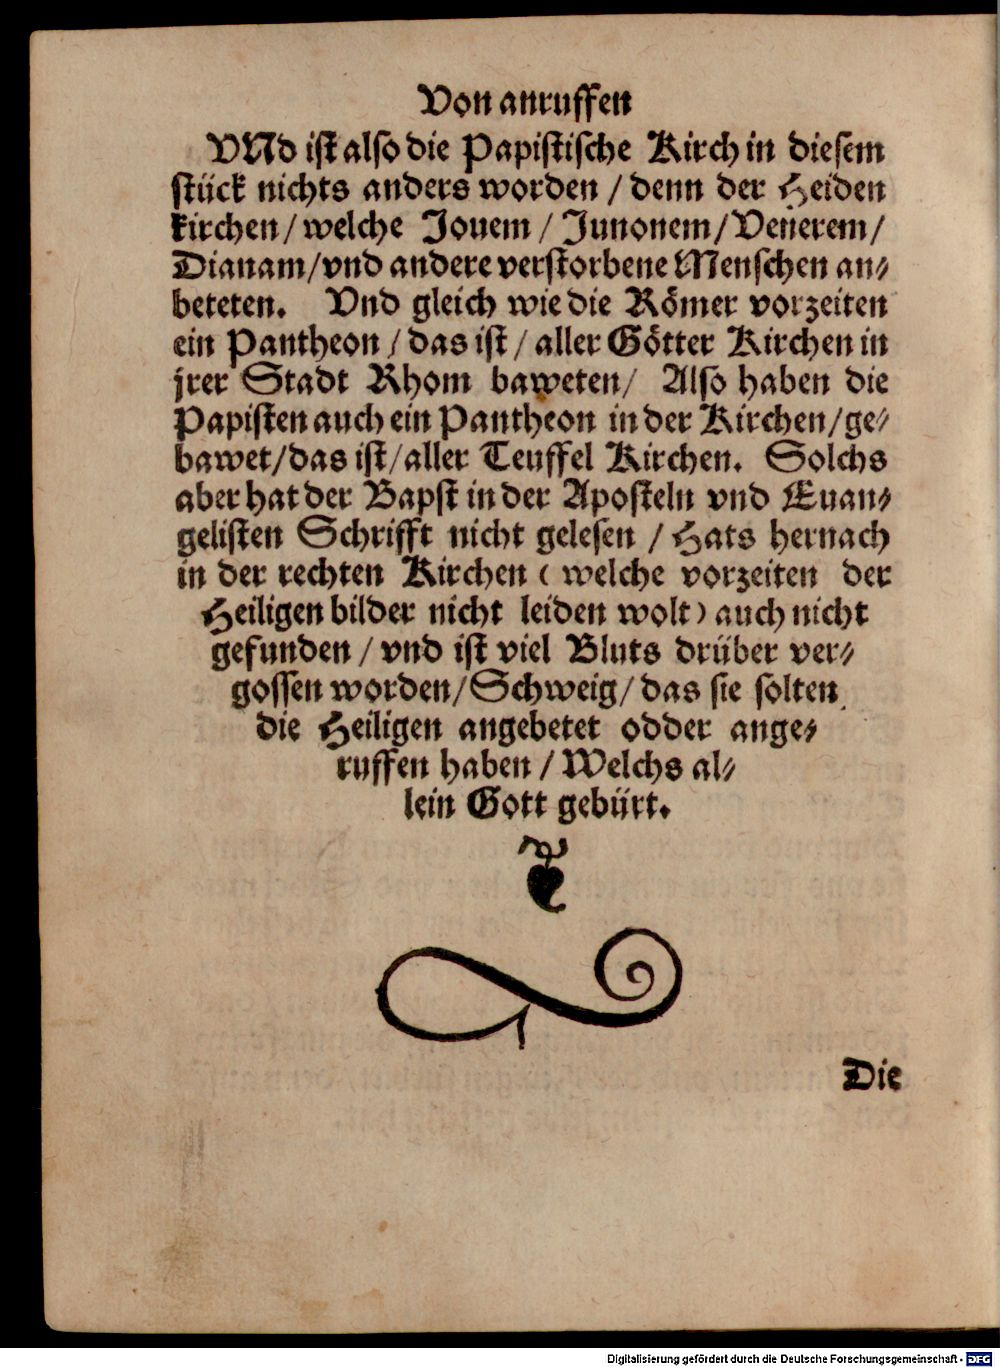 Von anruffen
VNd ist also die Papistische Kirch in diesem
stück nichts anders worden / denn der Heiden
kirchen / welche Jouem / Junonem / Venerem /
Dianam / vnd andere verstorbene Menschen an⸗
beteten. Vnd gleich wie die Römer vorzeiten
ein Pantheon / das ist / aller Götter Kirchen in
jrer Stadt Rhom baweten / Also haben die
Papisten auch ein Pantheon in der Kirchen / ge⸗
bawet / das ist / aller Teuffel Kirchen. Solchs
aber hat der Bapst in der Aposteln vnd Euan⸗
gelisten Schrifft nicht gelesen / Hats hernach
in der rechten Kirchen ( welche vorzeiten der
Heiligen bilder nicht leiden wolt ) auch nicht
gefunden / vnd ist viel Bluts drüber ver⸗
gossen worden / Schweig / das sie solten
die Heiligen angebetet odder ange⸗
ruffen haben / Welchs al⸗
lein Gott gebürt.
Die
Digitalisierung gefördert durch die Deutsche Forschungsgemeinschaft - DFG